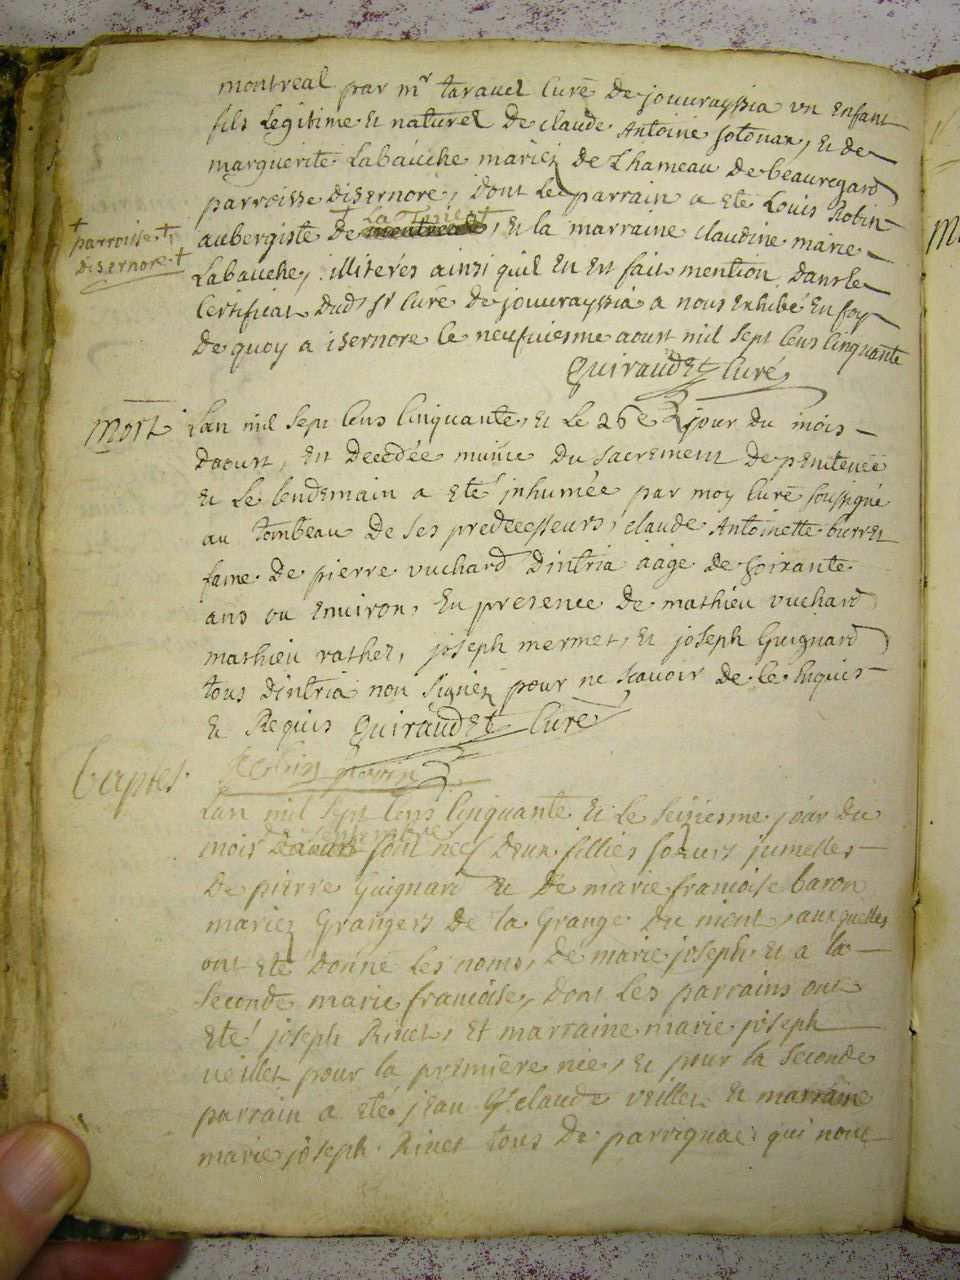 montreal par mr taravel Curé de jouurayssia vn Enfant
fils Legitime Et naturel De claude Antoine Et de
marguerite Labauche mariez De Lhameau De beauregard
parroisse Disernore, Dont Le parrain a Eté Louis Robin
† parroisse †
Disernore †
aubergiste De † La † Et la marraine claudine marie
Labauche, illiterés ainsi quil En Est fait mention Dans le
Certificat Dud Sr Curé De jouurayssia a nous Exhibé En foy
De quoy a isernore le neufuiesme aoust mil sept Cens Cinquante
Quiraudet Curé
Mort
Lan mil sept Cens Cinquante, Et Le 26e jour Du mois
Daoust, Est Decedée munie Du Sacrement De penitence
Et Le Lendemain a Eté inhumée par moy Curé soussigné
au tombeau De Ses predecesseurs, claude Antoinette burret
fame De pierre vuchard Dintria aage De soixante
ans ou Enuiron, En presence De mathieu vuchard
mathieu rathel, joseph mermet, Et joseph Guignard
tous Dintria non signez pour ne Scauoir De Ce Enquis
Et Requis Quiraudet Curé
baptes.
Lan mil Sept Cens Cinquante Et Le Seiziesme jour Du
mois De septembre sont nees Deux filles soeurs jumelles
De pierre Guignard Et De marie francoise baron
mariez Grangers De la Grange Du ment, auxquelles
ont Eté Donné Les noms, De marie joseph, Et a la
Seconde marie francoise, Dont Les parrains ont
Eté joseph Rivet, Et marraine marie joseph
veillet pour la première née, Et pour la Seconde
parrain a Eté jean claude veillet Et marraine
marie joseph Rivet tous De parrignac qui nont